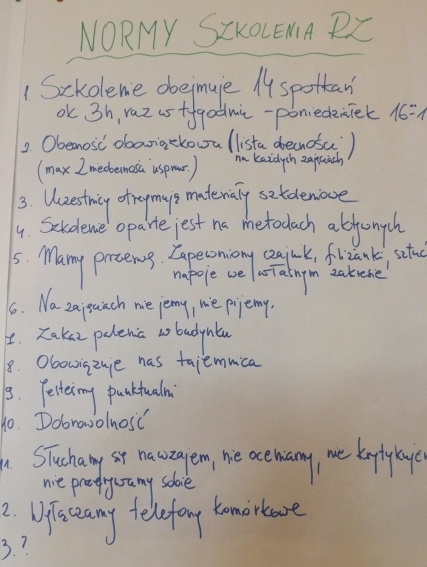 NORMY SZKOLENIA RZ
1. Szkolenie obejmuje 14 spotkań
ok 3h, raz w tygodniu - poniedziałek 16⁰⁰-1
2. Obecność obowiązkowa (lista obecności)
na każdych zajęciach
(max 2 nieobecności uspraw.)
3. Uczestnicy otrzymują materiały szkoleniowe
4. Szkolenie oparte jest na metodach aktywnych
5. Mamy przerwę. Zapewniony czajnik, filiżanki, sztuć
napoje we własnym zakresie
6. Na zajęciach nie jemy, nie pijemy.
7. Zakaz palenia w budynku
8. Obowiązuje nas tajemnica
9. Jesteśmy punktualni
10. Dobrowolność
11. Słuchamy się nawzajem, nie oceniamy, nie krytykujem
nie przerywamy sobie
2. Wyłączamy telefony komórkowe
3. ?